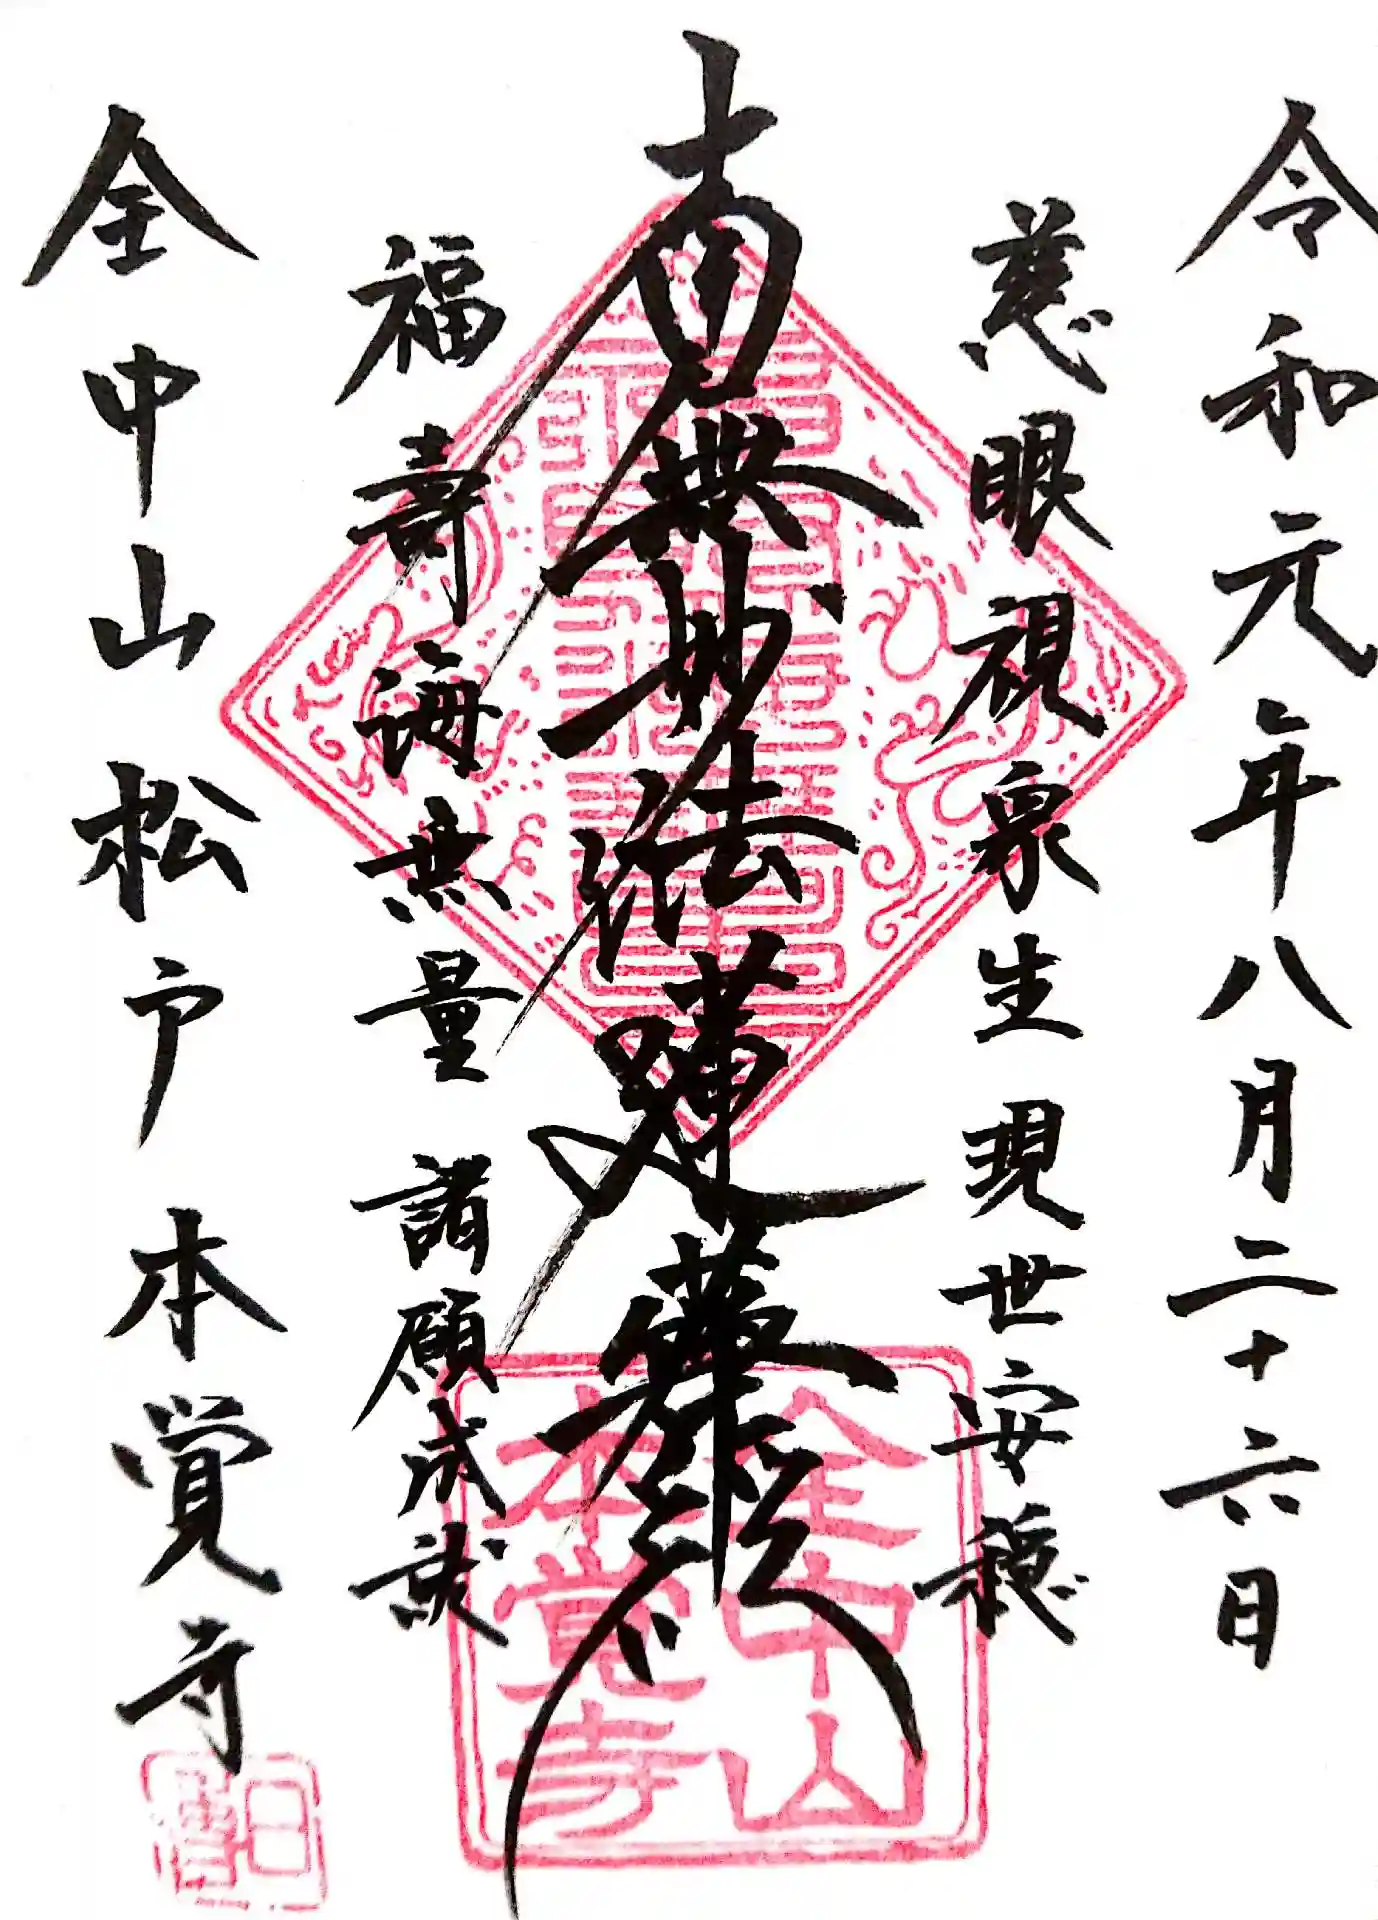 令和元年八月二十六日
慈眼視衆生 現世安穏
南無妙法蓮華経
福壽海無量 諸願成就
全中山松戸 本覚寺
全中山
本覚寺